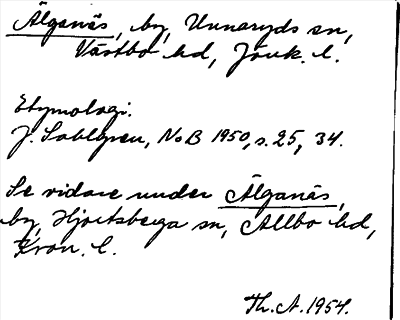 Älganäs, by, Unnaryds sn,
Västbo hd, Jönk. l.
Etymologi.
J. Sahlgren, NoB 1950, s. 25, 34.
Se vidare under Älganäs,
by, Hjortsberga sn, Allbo hd,
Kron. l.
Th. A. 1954.